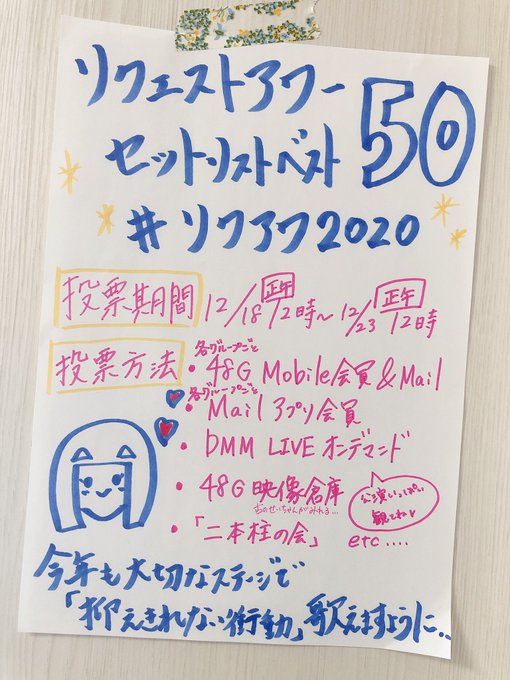 リクエストアワー
セットリストベスト 50
#リクアワ2020
投票期間 12/18 正午 12時〜12/23 正午 12時
投票方法
各グループごと
・48G Mobile会員&Mail
各グループごと
・Mailアプリ会員
・DMM LIVE オンデマンド
・48G 映像倉庫
公演いっぱい
観てね
・「二本柱の会」 etc....
今年も大切なステージで
「抑えきれない衝動」歌えますように...